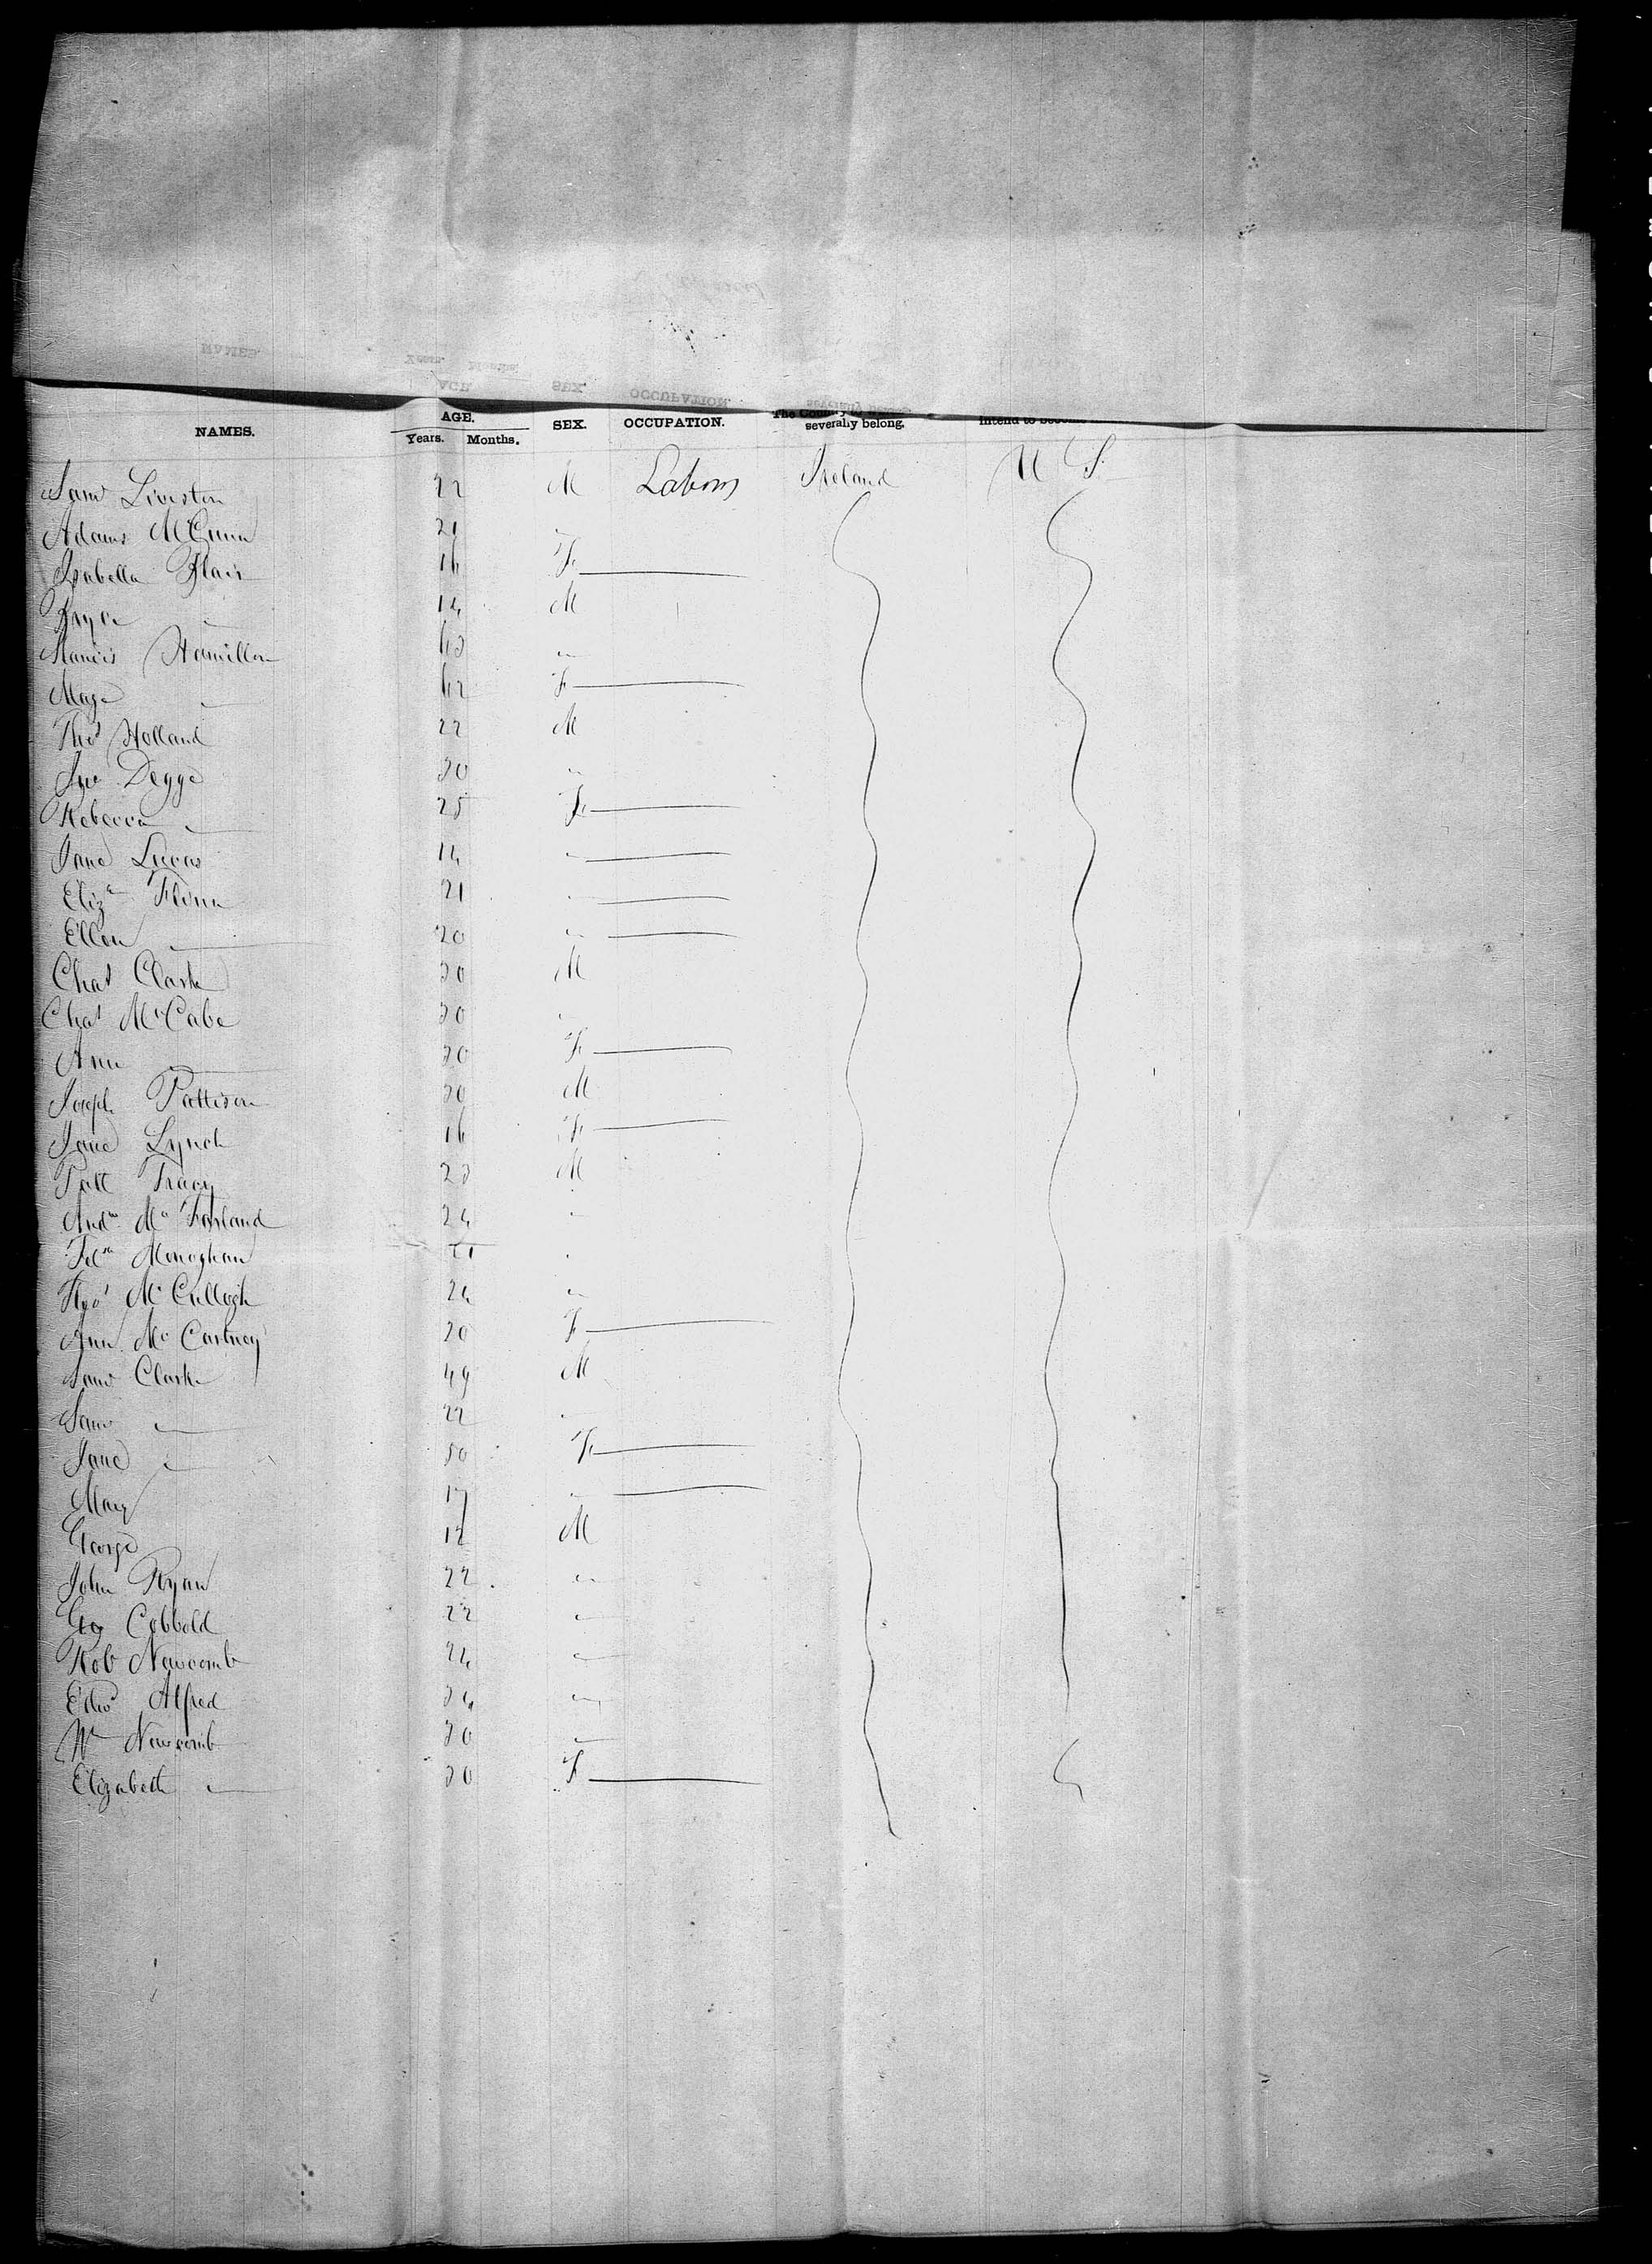 NAMES. AGE. SEX. OCCUPATION. The Country to severally belong. intend to become
Years. Months.
Saml Liviston 22 M Laborer Ireland U S.
Adams McCunn 21 "
Isabella Blair 16 F —
Bryce — 14 M
Francis Hamilton 63 "
Mage — 62 F —
Thos Holland 22 M
Jno Degge 30 "
Rebecca — 25 F —
Jane Lucas 14 " —
Eliza Flinn 21 " —
Ellen — 20 " —
Chas Clark 30 M
Chas McCabe 30 "
Ann — 30 F —
Joseph Pattison 30 M
Jane Lynch 16 F —
Patt Tracy 23 M
Andw McFarland 24 "
Monoghan 21 "
Thos McCullogh 24 "
Ann McCartney 20 F —
Saml Clark 49 M
Saml — 22 "
Jane — 50 F —
Mary 17 " —
George 12 M
John Ryan 22 "
Geo Cobbold 22 "
Rob Newcomb 24 "
Edwd Alfred 34 "
Wm Newcomb 30 "
Elizabeth — 30 F —